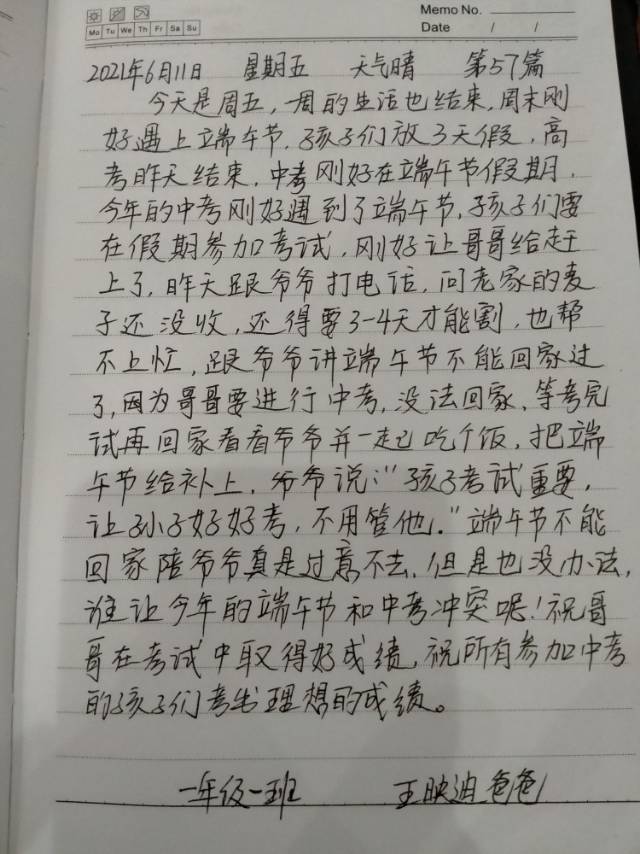 Memo No.
Mo Tu We Th Fr Sa Su
Date / /
2021年6月11日 星期五 天气晴 第57篇
今天是周五,一周的生活也结束,周末刚
好遇上端午节,孩子们放3天假,高
考昨天结束,中考刚好在端午节假期,
今年的中考刚好遇到了端午节,孩子们要
在假期参加考试,刚好让哥哥给赶
上了,昨天跟爷爷打电话,问老家的麦
子还没收,还得要3-4天才能割,也帮
不上忙,跟爷爷讲端午节不能回家过
了,因为哥哥要进行中考,没法回家、等考完
试再回家看看爷爷并一起吃个饭,把端
午节给补上,爷爷说:"孩子考试重要,
让孙子好好考,不用管他."端午节不能
回家陪爷爷真是过意不去,但是也没办法,
谁让今年的端午节和中考冲突呢!祝哥
哥在考试中取得好成绩,祝所有参加中考
的孩子们考出理想的成绩。
一年级一班 王映迪爸爸